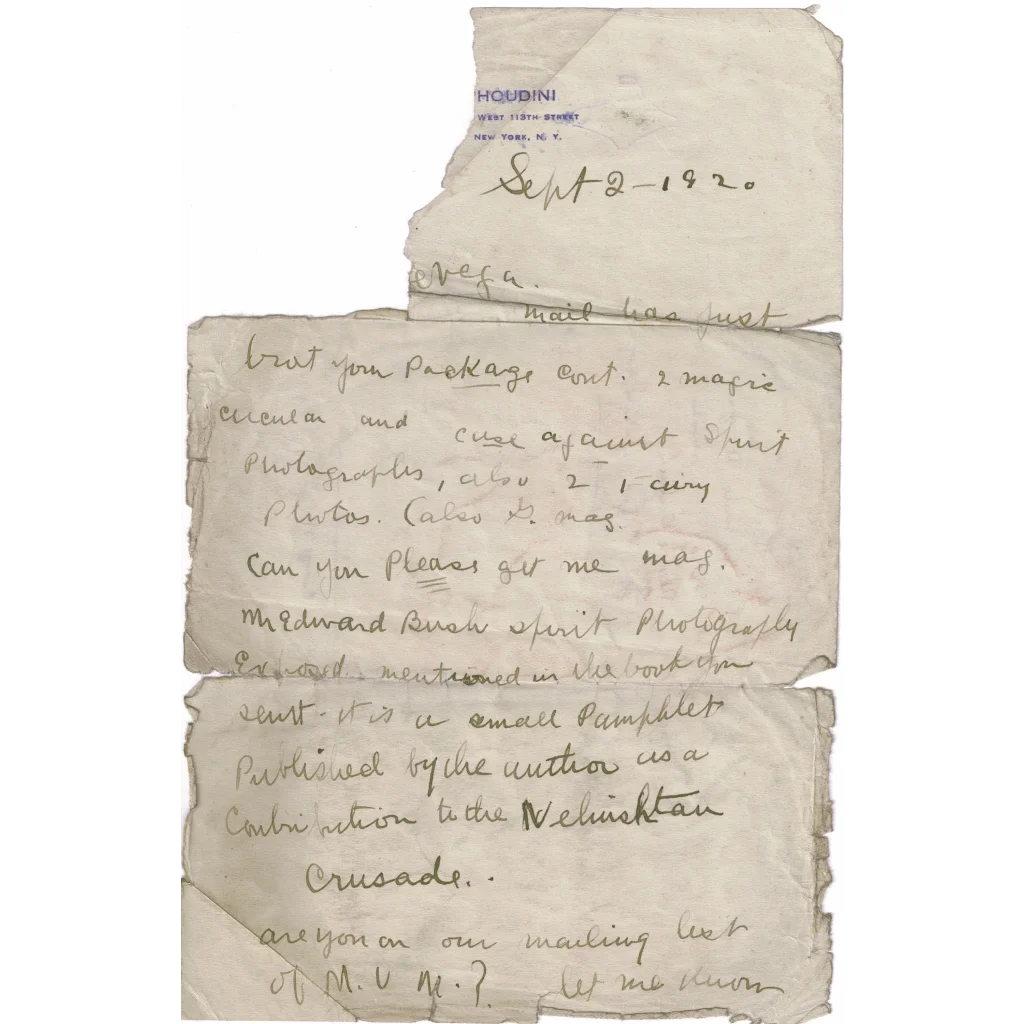 HOUDINI
WEST 113TH STREET
NEW YORK, N. Y.
Sept 2-1920
e Vega.
mail has just
brot your Package cont. 2 magic
circular and case against Spirit
Photographs, also 2 Fairy
Photos. (also S. mag.
Can you Please get me mag.
Mr Edward Bush spirit Photography
Exposed. mentioned in the book you
sent. it is a small Pamphlet
Published by the author as a
Contribution to the Nehushtan
Crusade..
are you on our mailing list
of M. U M.? let me know